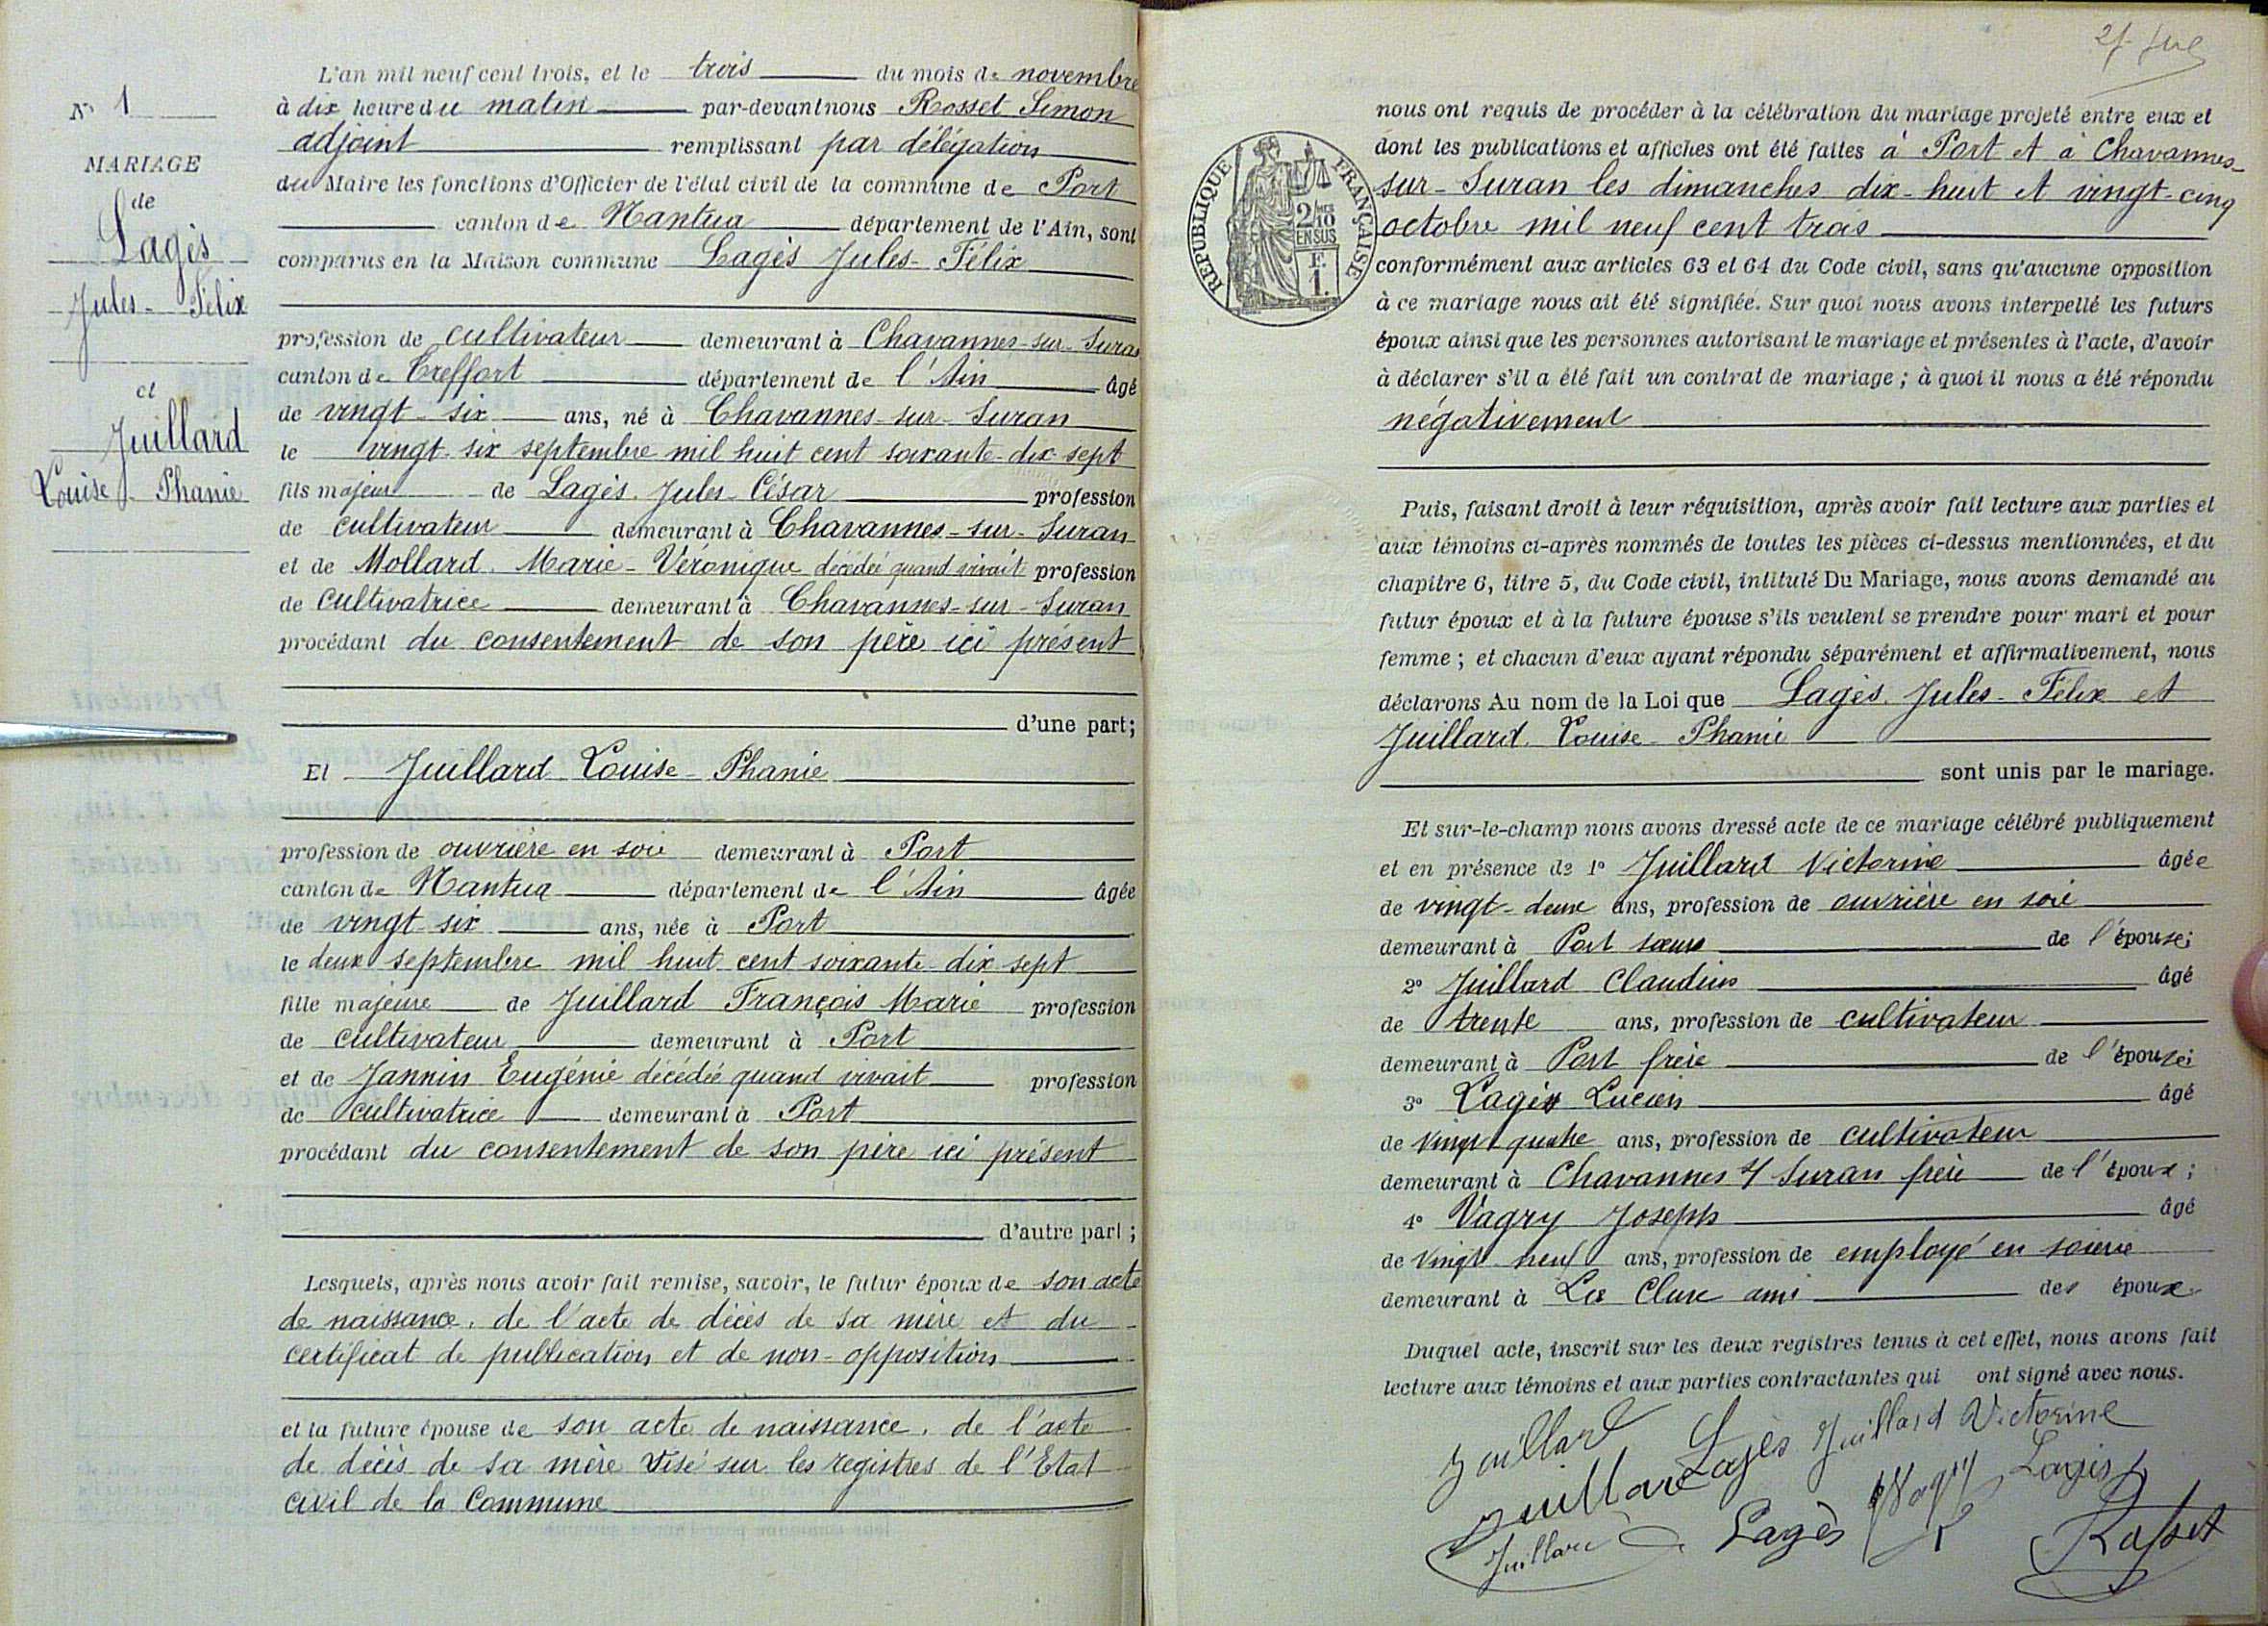 N° 1
MARIAGE
de
Lagès
Jules-Félix
et
Juillard
Louise-Phanie
L'an mil neuf cent trois, et le trois du mois de novembre
à dix heure du matin par-devant nous Rosset Simon
adjoint remplissant par délégation
du Maire les fonctions d'Officier de l'état civil de la commune de Port
canton de Nantua département de l'Ain, sont
comparus en la Maison commune Lagès Jules-Félix
profession de cultivateur demeurant à Chavannes-sur-Suran
canton de Treffort département de l'Ain âgé
de vingt-six ans, né à Chavannes-sur-Suran
le vingt-six septembre mil huit cent soixante-dix-sept
fils majeur de Lagès Jules-César profession
de cultivateur demeurant à Chavannes-sur-Suran
et de Mollard Marie-Véronique décédée quand vivait profession
de cultivatrice demeurant à Chavannes-sur-Suran
procédant du consentement de son père ici présent
d'une part;
Et Juillard Louise-Phanie
profession de ouvrière en soie demeurant à Port
canton de Nantua département de l'Ain âgée
de vingt-six ans, née à Port
le deux septembre mil huit cent soixante-dix-sept
fille majeure de Juillard François Marie profession
de cultivateur demeurant à Port
et de Jannin Eugénie décédée quand vivait profession
de cultivatrice demeurant à Port
procédant du consentement de son père ici présent
d'autre part;
Lesquels, après nous avoir fait remise, savoir, le futur époux de son acte
de naissance, de l'acte de décès de sa mère et du
certificat de publication et de non-opposition
et la future épouse de son acte de naissance, de l'acte
de décès de sa mère visé sur les registres de l'Etat
civil de la Commune
nous ont requis de procéder à la célébration du mariage projeté entre eux et
dont les publications et affiches ont été faites à Port et à Chavannes-
sur-Suran les dimanches dix-huit et vingt-cinq
octobre mil neuf cent trois
RÉPUBLIQUE FRANÇAISE
2/10 EN SUS
F.
1.
conformément aux articles 63 et 64 du Code civil, sans qu'aucune opposition
à ce mariage nous ait été signifiée. Sur quoi nous avons interpellé les futurs
époux ainsi que les personnes autorisant le mariage et présentes à l'acte, d'avoir
à déclarer s'il a été fait un contrat de mariage; à quoi il nous a été répondu
négativement
Puis, faisant droit à leur réquisition, après avoir fait lecture aux parties et
aux témoins ci-après nommés de toutes les pièces ci-dessus mentionnées, et du
chapitre 6, titre 5, du Code civil, intitulé Du Mariage, nous avons demandé au
futur époux et à la future épouse s'ils veulent se prendre pour mari et pour
femme; et chacun d'eux ayant répondu séparément et affirmativement, nous
déclarons Au nom de la Loi que Lagès Jules-Félix et
Juillard Louise-Phanie
sont unis par le mariage.
Et sur-le-champ nous avons dressé acte de ce mariage célébré publiquement
et en présence de 1° Juillard Victorine âgée
de vingt-deux ans, profession de ouvrière en soie
demeurant à Port sœur de l'épouse;
2° Juillard Claudius âgé
de trente ans, profession de cultivateur
demeurant à Port frère de l'épouse;
3° Lagès Lucien âgé
de vingt quatre ans, profession de cultivateur
demeurant à Chavannes s/ Suran frère de l'époux;
4° Vagry Joseph âgé
de vingt-neuf ans, profession de employé en soierie
demeurant à La Cluse ami des époux.
Duquel acte, inscrit sur les deux registres tenus à cet effet, nous avons fait
lecture aux témoins et aux parties contractantes qui ont signé avec nous.
Juillard Lagès Juillard Victorine
Juillard Vagry Lagès
Juillard Lagès Rosset